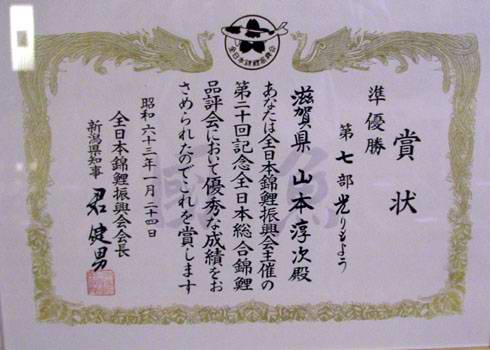 全日本錦鯉振興会
賞状
準優勝
第七部光りもよう
滋賀県 山本淳次殿
あなたは全日本錦鯉振興会主催の
第二十回記念全日本総合錦鯉
品評会において優秀な成績をお
さめられたのでこれを賞します
昭和六十三年一月二十四日
全日本錦鯉振興会会長
新潟県知事 君健男
國魚